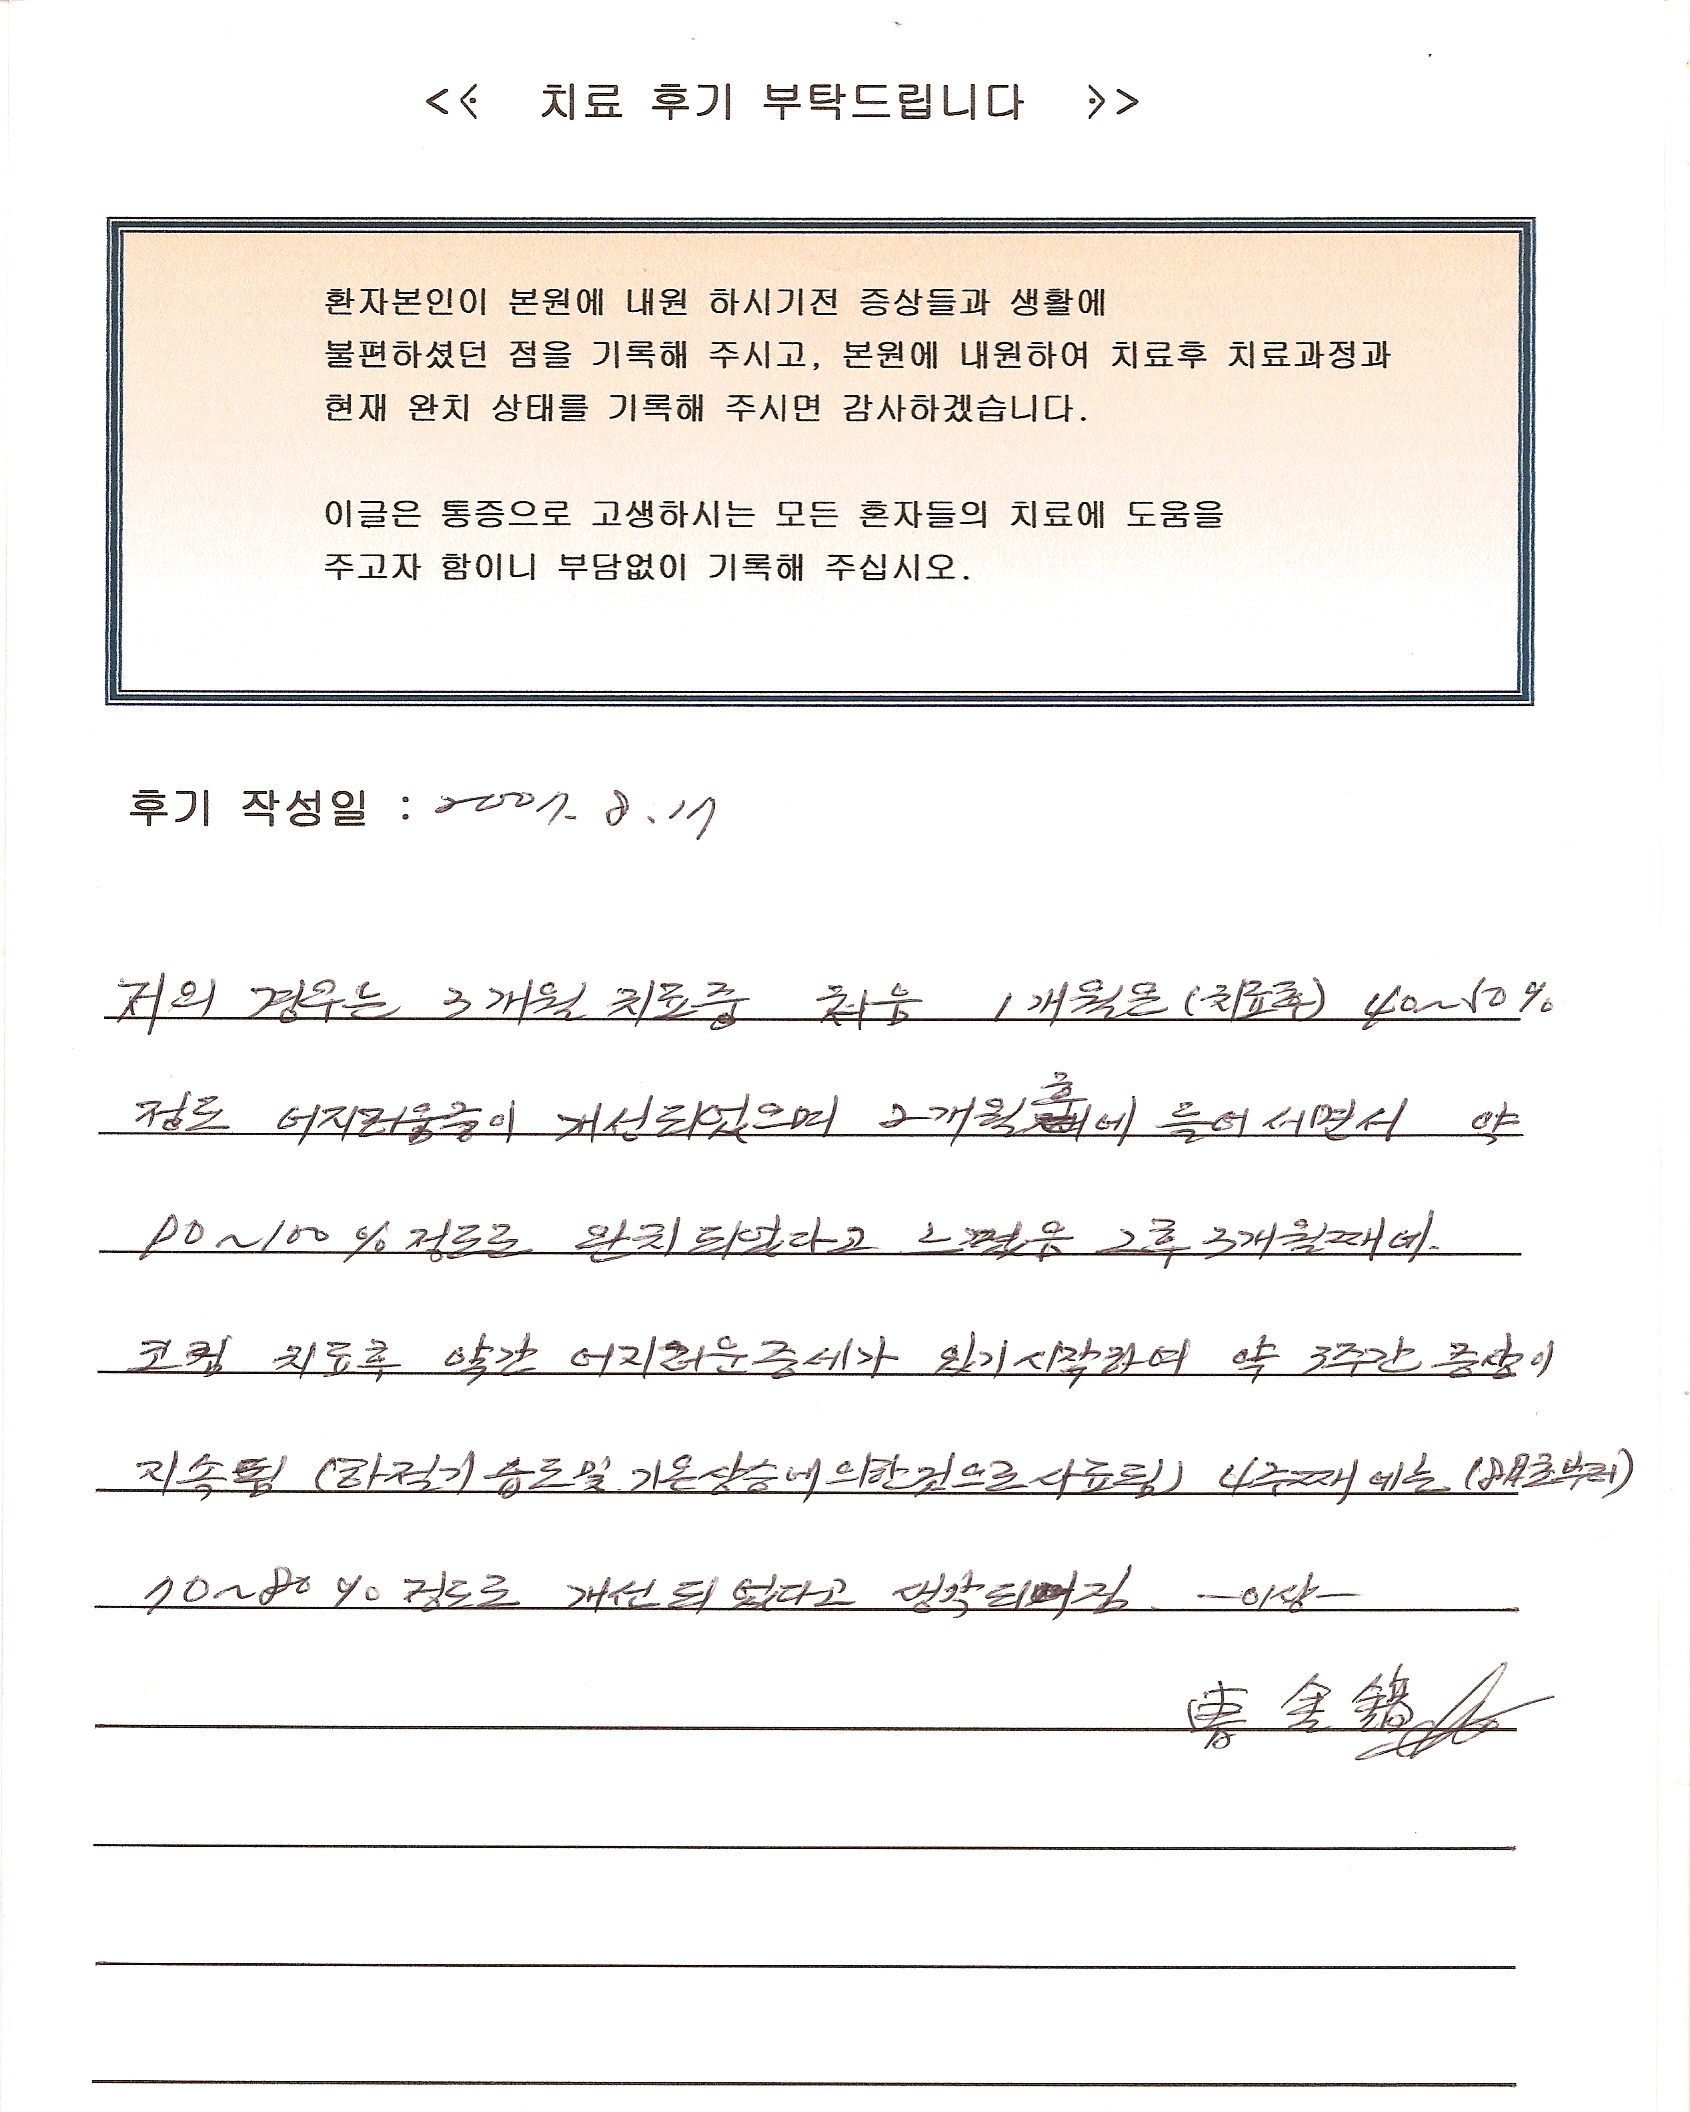 << 치료 후기 부탁드립니다 >>
환자본인이 본원에 내원 하시기전 증상들과 생활에
불편하셨던 점을 기록해 주시고, 본원에 내원하여 치료후 치료과정과
현재 완치 상태를 기록해 주시면 감사하겠습니다.
이글은 통증으로 고생하시는 모든 혼자들의 치료에 도움을
주고자 함이니 부담없이 기록해 주십시오.
후기 작성일 : 2007. 8. 17
저의 경우는 3개월 치료중 처음 1개월은 (치료후) 40~50%
정도 어지러움증이 개선되었으며 2개월후에 들어서면서 약
90~100%정도로 완치되었다고 느꼈음 그후 3개월째에.
치료후 약간 어지러운증세가 있기 시작하여 약 3주간 증상이
지속됨 (하절기 습도및 기온상승에 의한것으로 사료됨) 4주째에는 (8月초부터)
70~80%정도로 개선되었다고 생각되어짐. -이상-
金